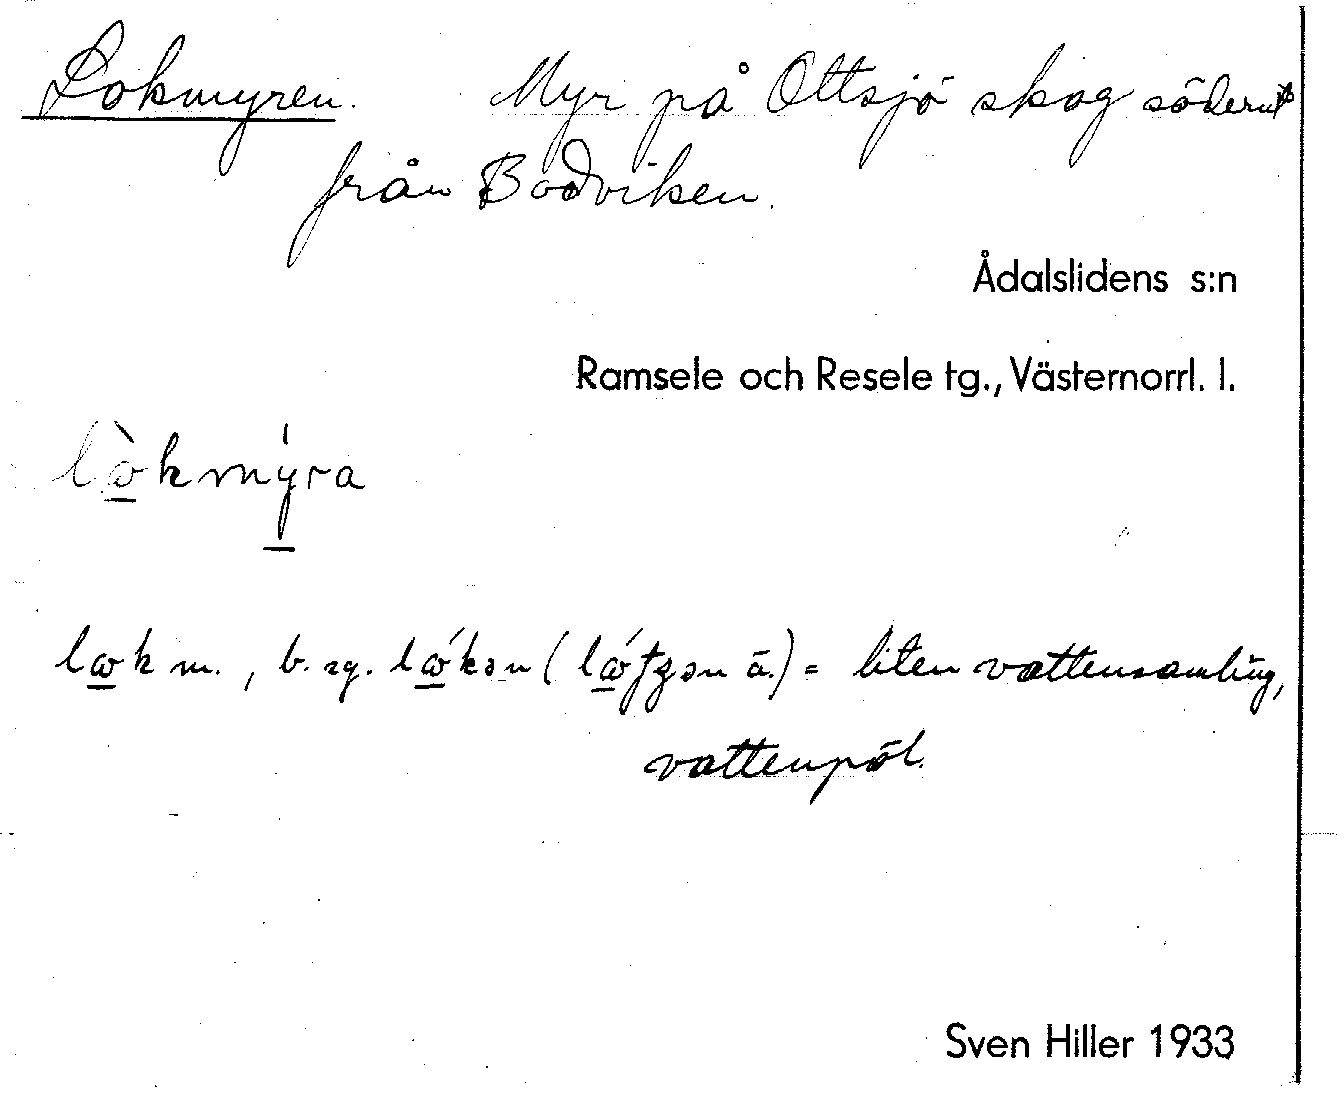 Lokmyren. Myr på Ottsjö skog söderut
från Bodviken.
Ådalslidens s:n
Ramsele och Resele tg., Västernorrl. l.
lò̱kmý̱ra
lo̱k m., b. sg. ló̱kən ( ä.) = liten vattensamling,
vattenpöl.
Sven Hiller 1933